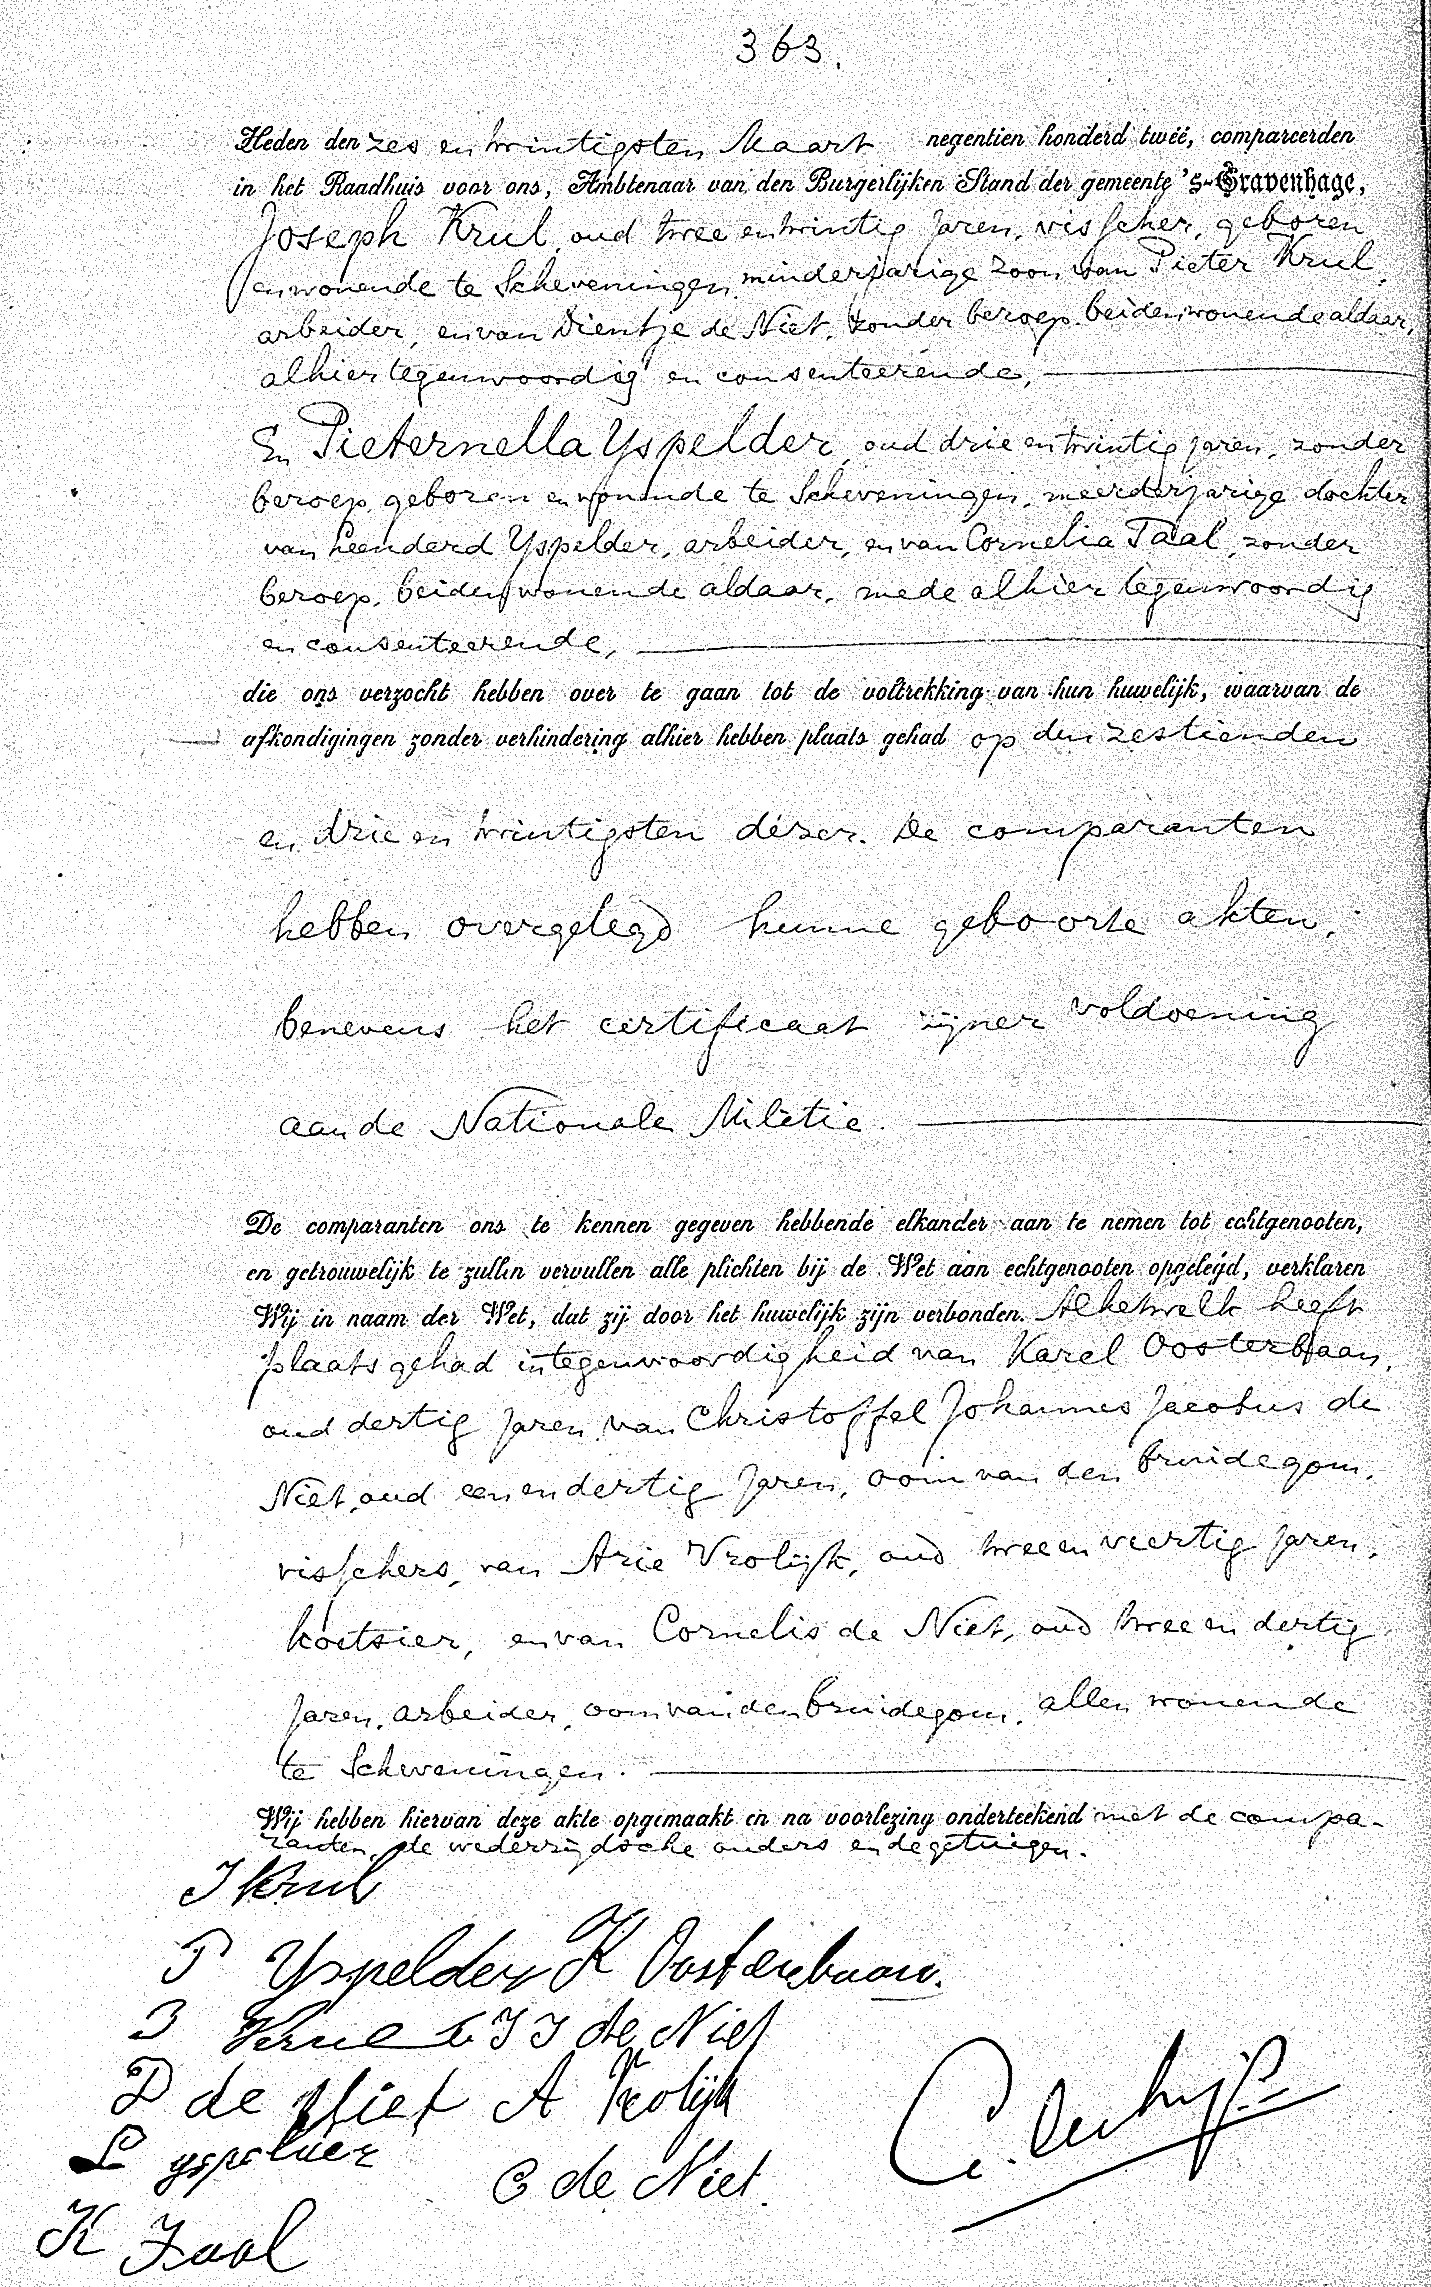 363.
Heden den zes en twintigsten Maart negentien honderd twéé, compareerden
in het Raadhuis voor ons, Ambtenaar van den Burgerlijken Stand der gemeente 's-Gravenhage,
Joseph Krul, oud twee en twintig jaren, visscher, geboren
en wonende te Scheveningen, minderjarige zoon van Pieter Krul,
arbeider, en van Dientje de Niet, zonder beroep, beiden wonende aldaar,
alhier tegenwoordig en consenteerende,
En Pieternella Yspelder, oud drie en twintig jaren, zonder
beroep, geboren en wonende te Scheveningen, meerderjarige dochter
van Leenderd Yspelder, arbeider, en van Cornelia Taal, zonder
beroep, beiden wonende aldaar, mede alhier tegenwoordig
en consenteerende,
die ons verzocht hebben over te gaan tot de voltrekking van hun huwelijk, waarvan de
afkondigingen zonder verhindering alhier hebben plaats gehad op den zestienden
en drie en twintigsten dézer. De comparanten
hebben overgelegd hunne geboorte akten,
benevens het certificaat zijner voldoening
aan de Nationale Militie.
De comparanten ons te kennen gegeven hebbende elkander aan te nemen tot echtgenooten,
en getrouwelijk te zullen vervullen alle plichten bij de Wet aan echtgenooten opgelegd, verklaren
Wij in naam der Wet, dat zij door het huwelijk zijn verbonden. Alhetwelk heeft
plaats gehad in tegenwoordigheid van Karel Oosterbaan,
oud dertig jaren, van Christoffel Johannes Jacobus de
Niet, oud een en dertig jaren, oom van den bruidegom,
visschers, van Arie Vrolijk, oud twee en veertig jaren,
koetsier, en van Cornelis de Niet, oud twee en dertig
jaren, arbeider, oom van den bruidegom, allen wonende
te Scheveningen.
Wij hebben hiervan deze akte opgemaakt en na voorlezing onderteekend met de compa-
ranten, de wederzijdsche ouders en de getuigen.
J Krul
P Yspelder K Oosterbaan.
Krul J J de Niet
D de Niet A Vrolijk
L yspelder
C de Niet.
K Taal